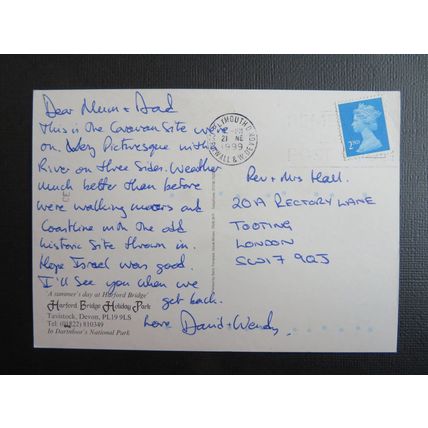 Dear Mum + Dad
This is the Caravan Site we're
on. Very Picturesque with a
River on three sides. Weather
much better than before
were walking moors and
Coastline with the odd
historic Site thrown in.
Hope Israel was good.
I'll See you when we
get back.
Love David + Wendy.
'A summer's day at Harford Bridge'
Harford Bridge Holiday Park
Tavistock, Devon, PL19 9LS
Tel: (01822) 810349
In Dartmoor's National Park
PLYMOUTH
21 NE
1999
CORNWALL & W DEVON
2ND
Rev + Mrs Hall.
201A RECTORY LANE
TOOTING
LONDON
SW17 9QJ